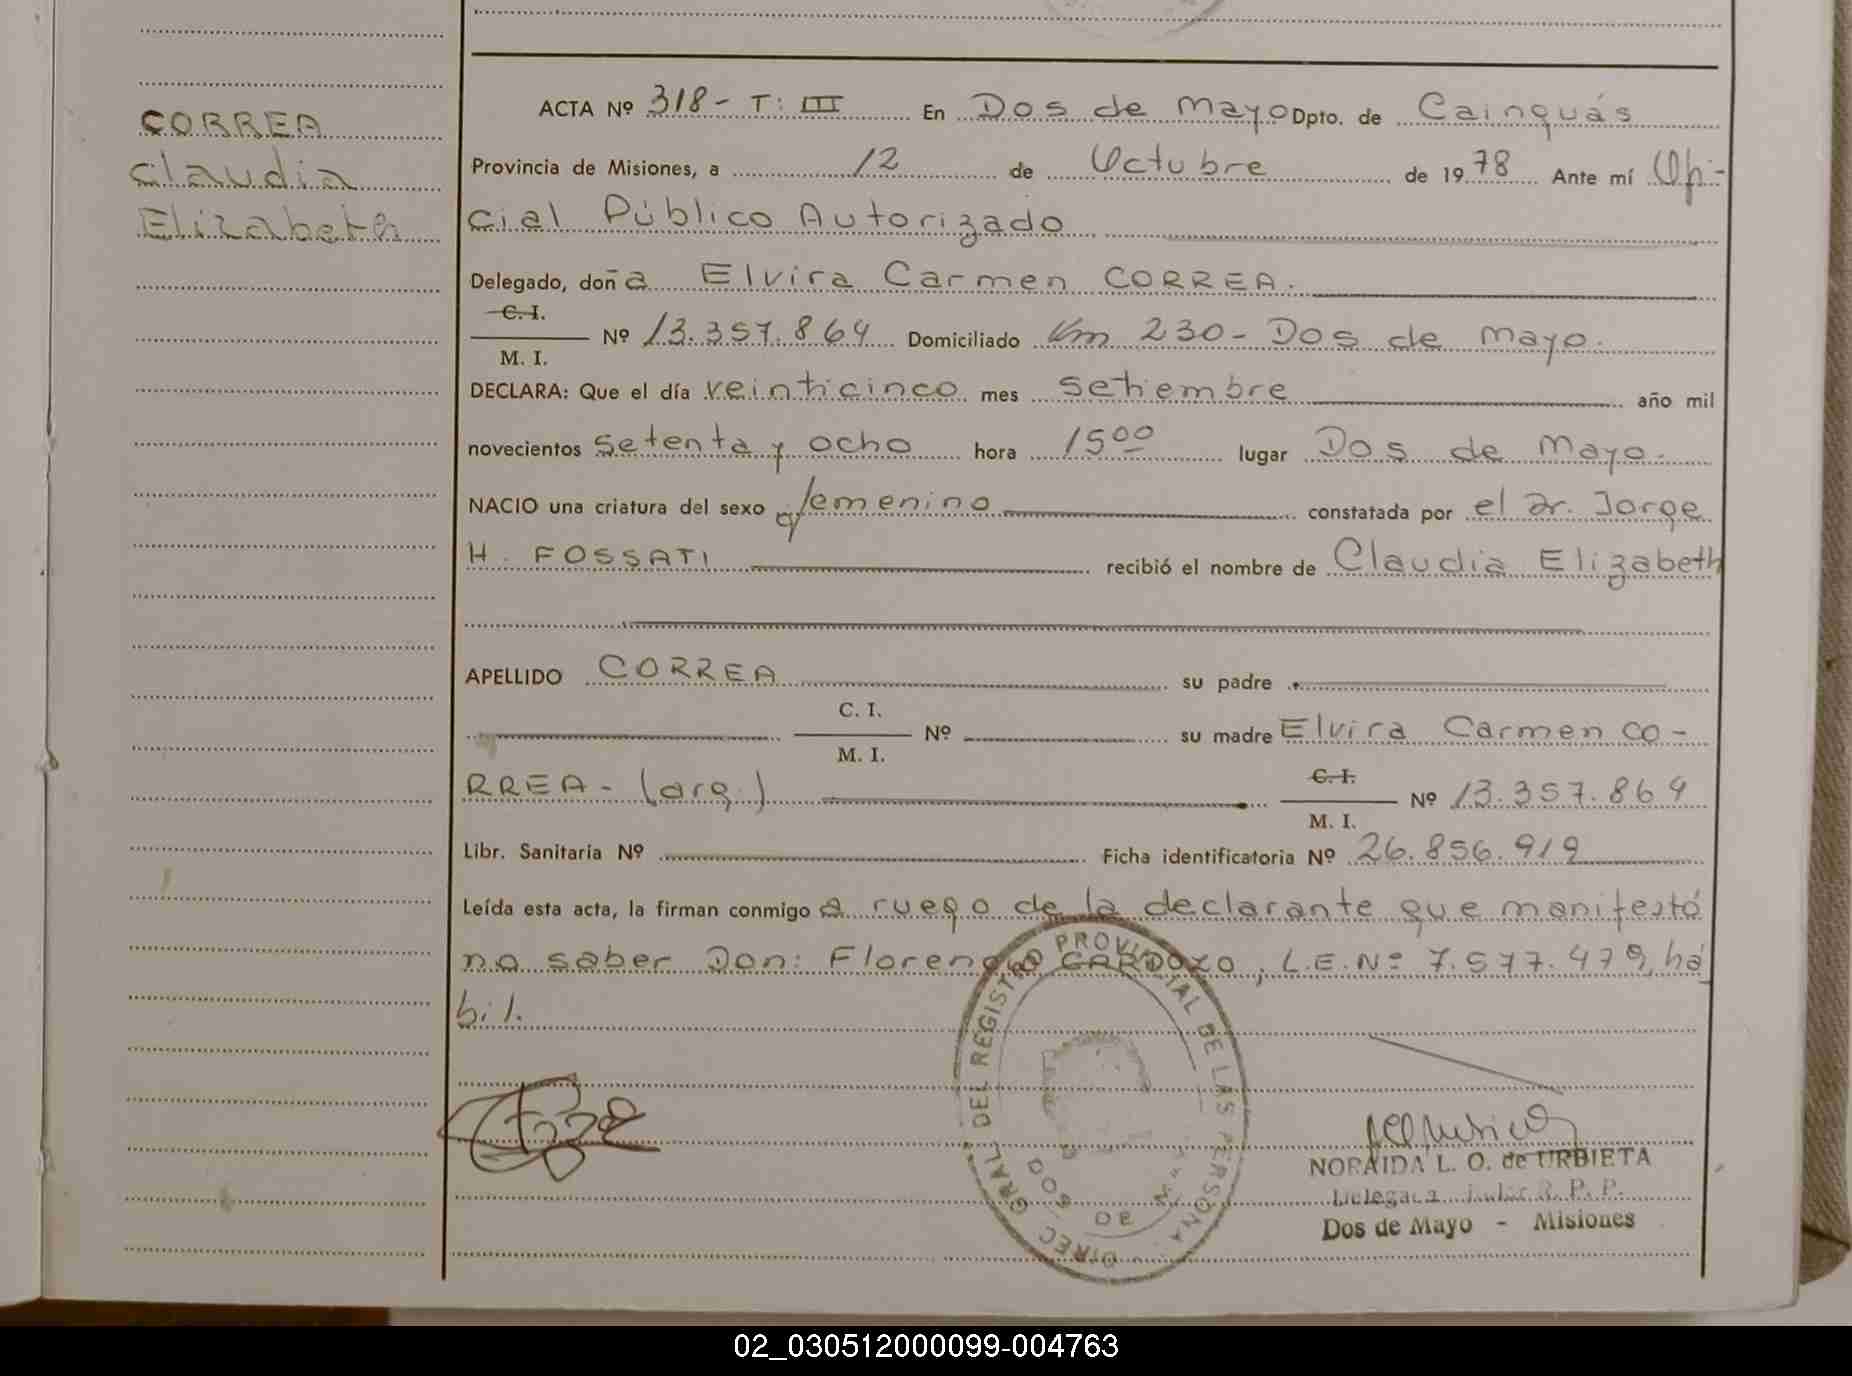 CORREA
Claudia
Elizabeth
ACTA Nº 318- T: III En Dos de Mayo Dpto. de Cainguás
Provincia de Misiones, a 12 de Octubre de 1978 Ante mí Ofi-
cial Público Autorizado
Delegado, doña Elvira Carmen CORREA.
C. I.
M. I. Nº 13.357.864 Domiciliado Km 230- Dos de Mayo.
DECLARA: Que el día veinticinco mes setiembre año mil
novecientos setenta y ocho hora 15⁰⁰ lugar Dos de Mayo.
NACIO una criatura del sexo femenino constatada por el Dr. Jorge
H. FOSSATI recibió el nombre de Claudia Elizabeth
APELLIDO CORREA su padre
C. I.
M. I. Nº su madre Elvira Carmen CO-
RREA- (arg.) C. I.
M. I. Nº 13.357.864
Libr. Sanitaria Nº Ficha identificatoria Nº 26.856.919
Leída esta acta, la firman conmigo a ruego de la declarante que manifestó
no saber Don: Florencio CARDOZO, L.E.Nº 7.577.479, há
bil.
DIREC. GRAL. DEL REGISTRO PROVINCIAL DE LAS PERSONA
DOS DE M
NORAIDA L. O. de URBIETA
Delegada R. P. P.
Dos de Mayo - Misiones
02_030512000099-004763